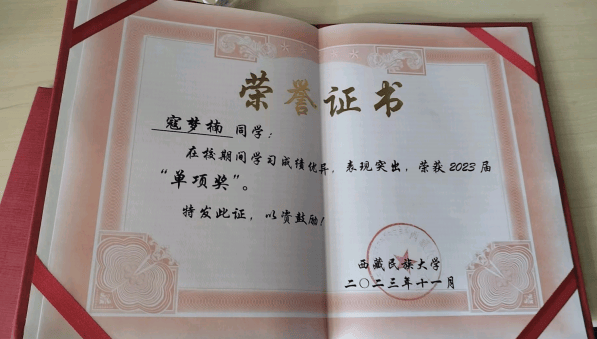 荣誉证书
寇梦楠 同学：
在校期间学习成绩优异，表现突出，荣获2023届
“单项奖”。
特发此证，以资鼓励！
西藏民族大学
二〇二三年十一月